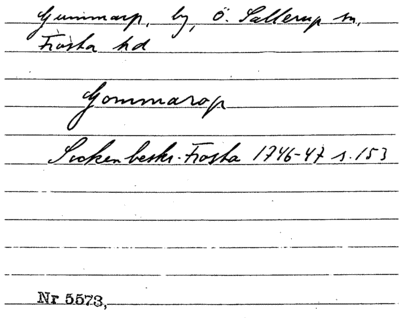 Gummarp, by, Ö. Sallerup sn,
Frosta hd
Gommarop
Sockenbeskr. Frosta 1746-47 s. 153
Nr 5573,